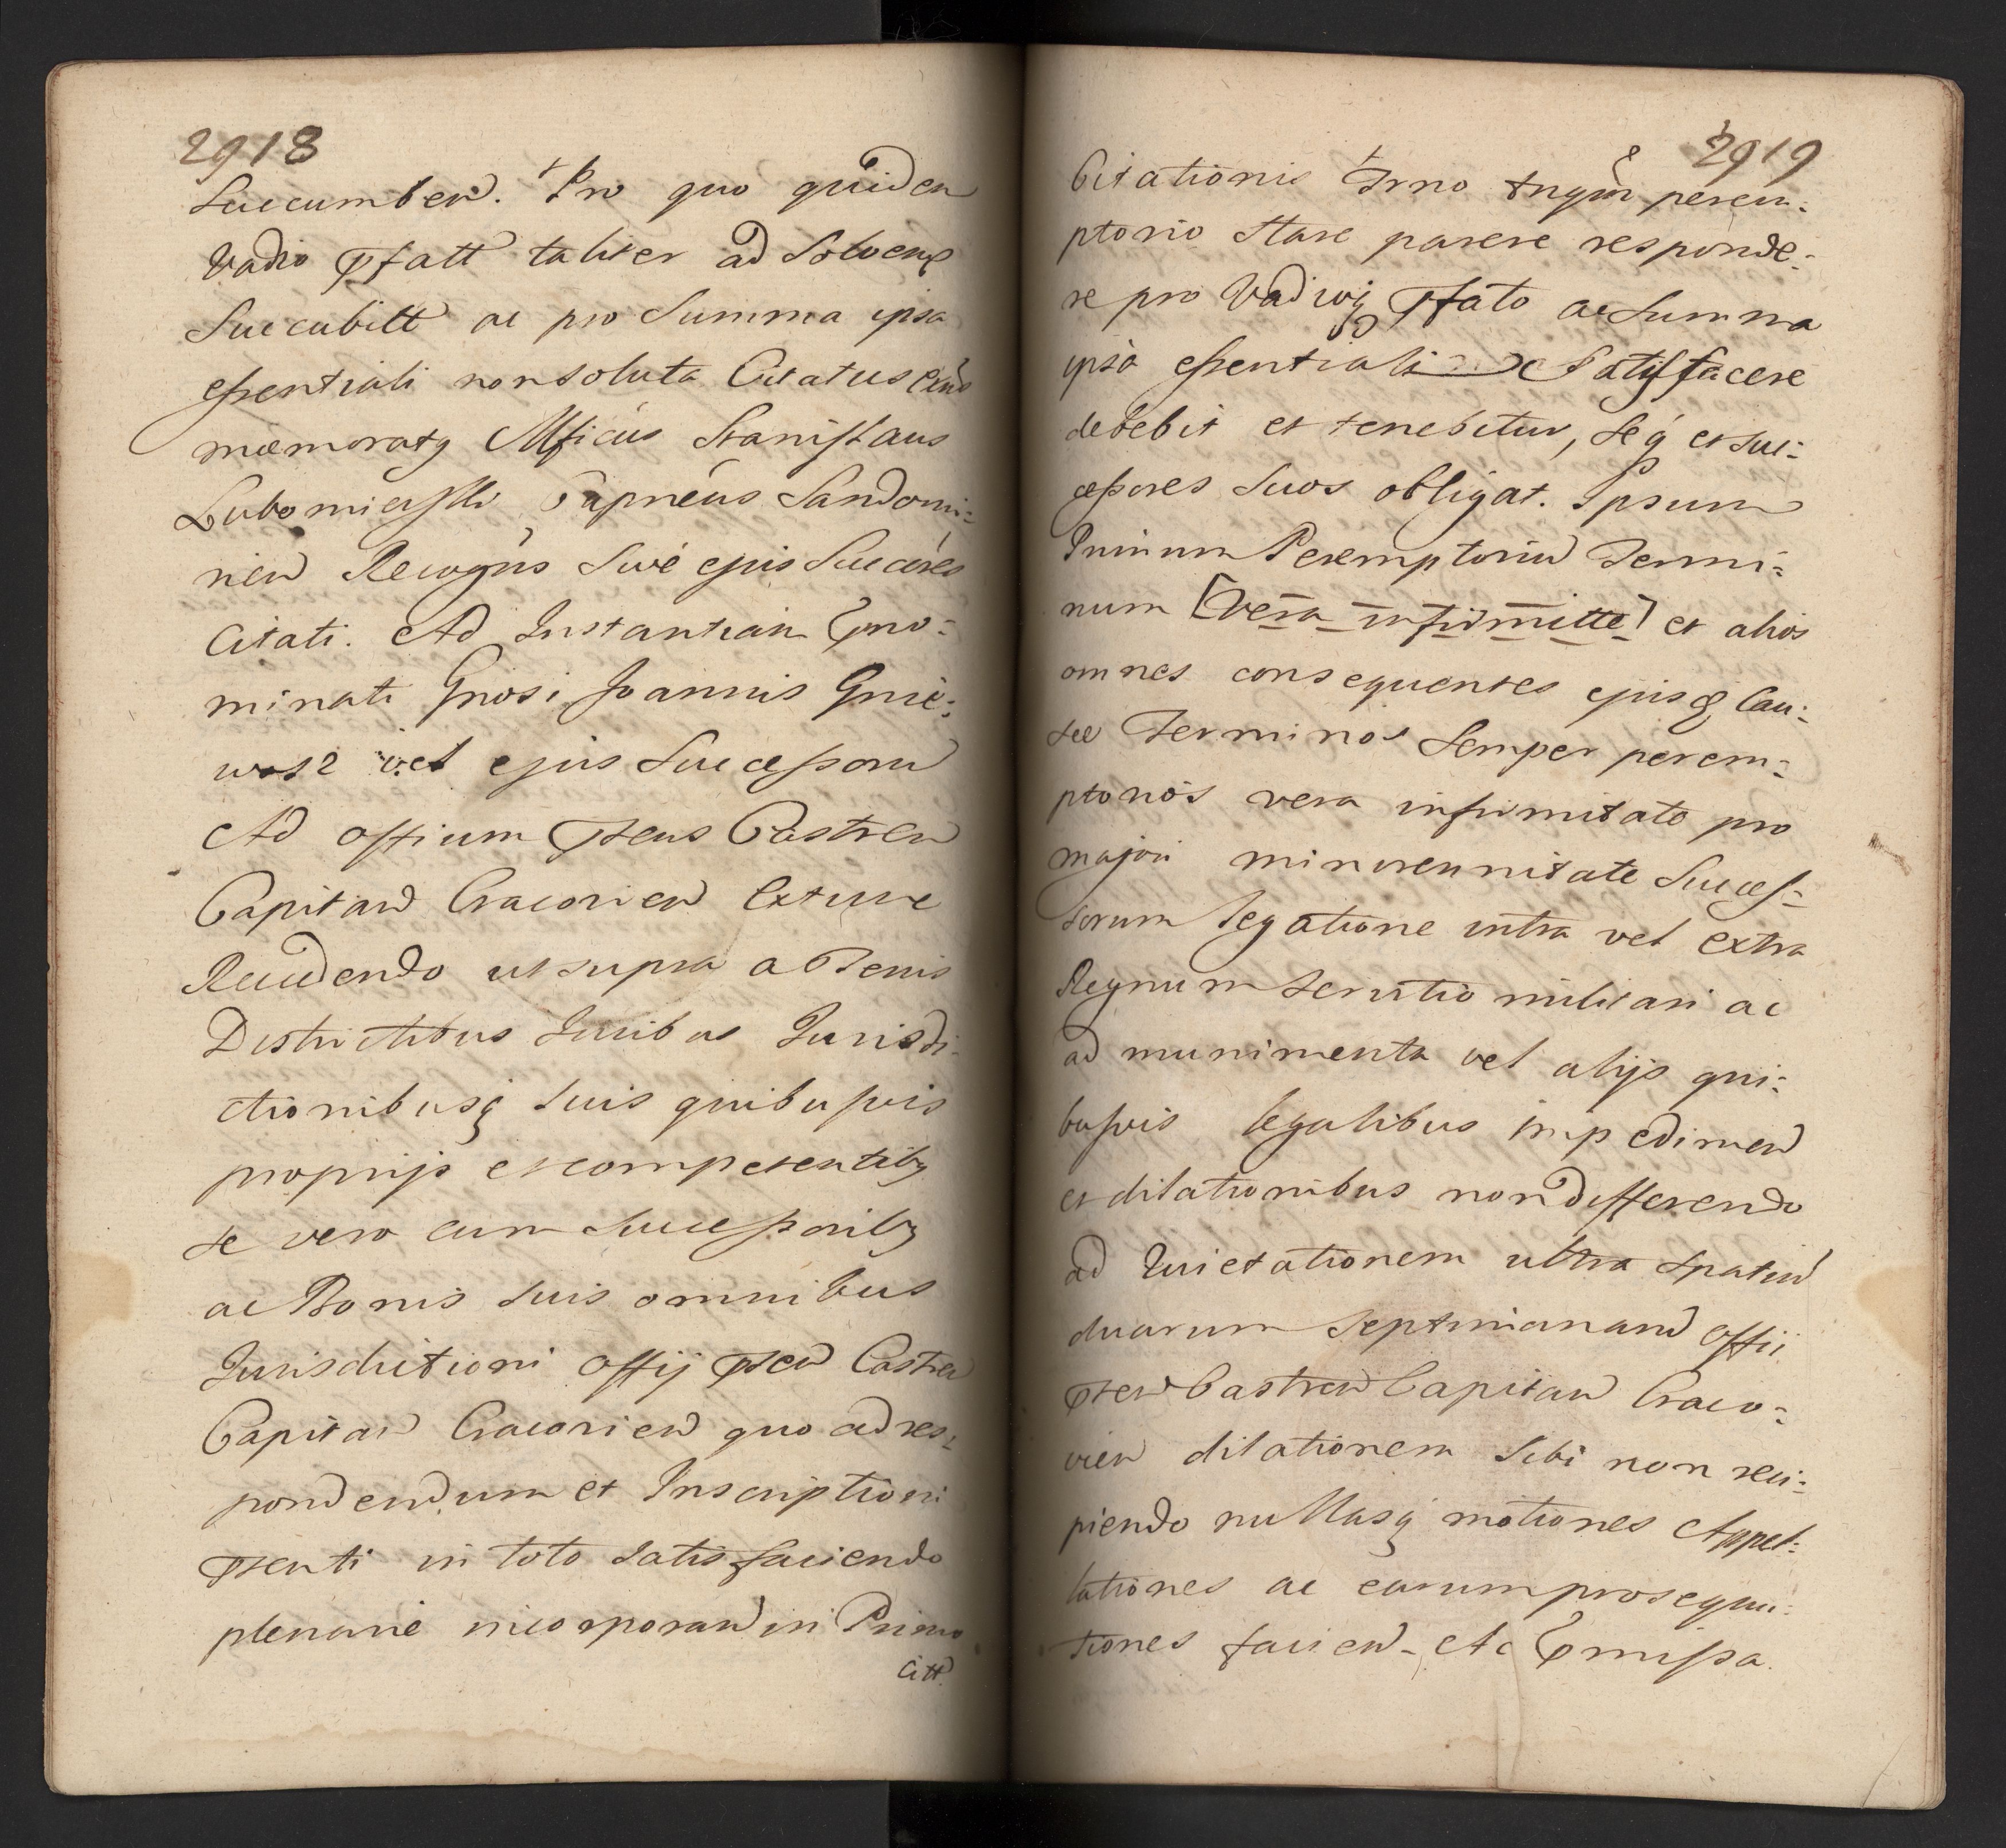 2918
Succumben. Pro quo quidem
Vadio pfatt taliter ad Solvend
Succubitt ac pro Summa ipsa
essentiali non soluta Citatus
memoratq Mficus Stanislaus
Lubomierski Capneus Sandomi=
rien Recogns Sive ejus Succēres
Citati. Ad Instantiam Pno=
minati Gnosi Joannis Gnie=
wosz vel ejus Successorū
Ad offium pseus Castren
Capitan Cracovien Extune
Recedendo ut supra a Tenis
Districtibus Juribus Jurisdi=
ctionibusq suis quibusvis
proprijs et competentibq
se vero cum Successoribq
ac Bonis suis omnibus
Jurisdictioni offij psen Castren
Capitan Cracovien quo ad res=
pondendum et Inscriptioni
psenti in toto satisfaciendo
plenarie incorporan in Primo
Citt
2919
Citationis Trno tnqm perem=
ptorio stare parere responde=
re pro Vadioq pfato ac Summa
ipsa essentiali Satisfacere
debebit et tenebitur, seq et suc=
cessores suos obligat. Ipsum
Primum Peremptoriū Termi=
num [vera infirmitte] et alios
omnes consequentes ejusq Cau=
sae Terminos Semper perem=
ptorios vera infirmitate pro
majori minorennitate Succes=
sorum legatione intra vel extra
Regnum servitio militari ac
ad munimenta vel alijs qui=
busvis legalibus impedimen
et dilationibus non differendo
ad Quietationem ultra spatiū
duarum Septimanarū offii
psen Castren Capitan Craco=
vien dilationem Sibi non reci=
piendo nullasq motiones Appel=
lationes ac earum prosequu=
tiones facien. Ac Pmissa.